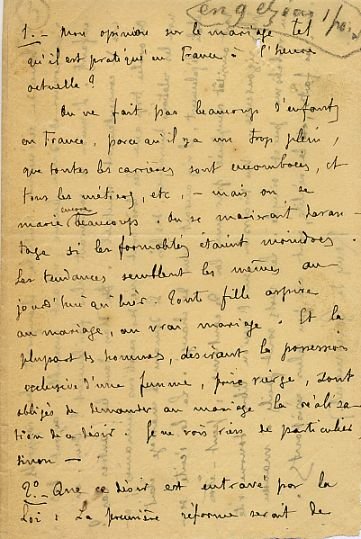 1. — Mon opinion sur le mariage tel
qu'il est pratiqué en France à l'heure
actuelle ?
On ne fait pas beaucoup d'enfants
en France, parce qu'il y a un trop plein,
que toutes les carrières sont encombrées, et
tous les métiers, etc, — mais on se
marie encore beaucoup. On se marierait davan
tage si les formalités étaient moindres.
Les tendances semblent les mêmes au-
jourd'hui qu'hier. Toute fille aspire
au mariage, au vrai mariage. Et la
plupart des hommes, désirant la possession
exclusive d'une femme, prise vierge, sont
obligés de demander au mariage la réalisa
tion de ce désir. Je ne vois rien de particulier
sinon —
2º. — Que ce désir est entravé par la
Loi. La première réforme serait de